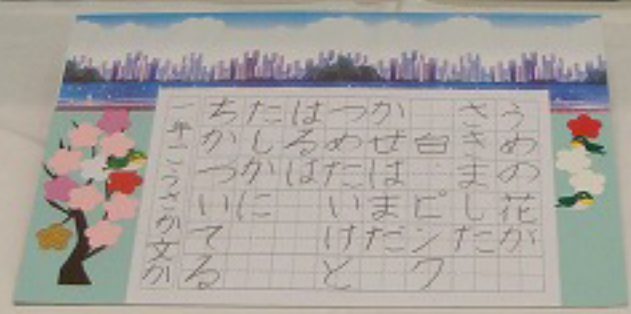 うめの花が
さきました
白 ピンク
かぜはまだ
つめたいけど
はるは
たしかに
ちかづいてる
一年こうさか文か